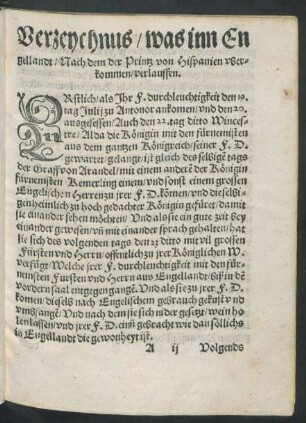 Verzeychnus / was inn En
gillandt / Nach dem der Printz von Hispanien vber-
kommen / verlauffen.
ERstlich / als Ihr F. durchleuchtigkeit den 19.
tag Julij zu Antonor ankomen / vnd den 20.
außgesessen / Auch den 22. tag ditto Wincest-
re / Alda die Königin mit den fürnemisten
aus dem gantzen Königreich / seiner F. D.
gewartet / gelangt / ist gleich des selbigē tags
der Graff von Arandel / mit einem anderē der Königin
fürnemsten Kemerling einem / vnd sonst einem grossen
Engelischen Herren zu jrer F. D. Kömen / vnd dieselbi-
gen heimlich zu hoch gedachter Königin gefürt / damit
sie einander sehen möchten / Vnd als sie ein gute zeit bey
einander gewesen / vñ mit einander sprach gehalten / hat
sie sich des volgenden tags den 23 ditto mit vil grossen
Fürsten vnd Herrn / offenlich zu jrer Königlichen W.
verfügt / Welche jrer F. durchleuchtigkeit mit den für-
nemsten Fürsten vnd Herrn aus Engellandt / biß in dē
vordern saal entgegen gangē. Vnd als sie zu jrer F. D.
komen / dieselb nach Engelischem gebrauch gekust vnd
vmbfangē. Vnd nach dem sie sich nider gesetzt / wein ho-
len lassen / vnd jrer F. D. einß gebracht wie dan söllichs
in Engellandt die gewonheyt ist.
A ij Volgends